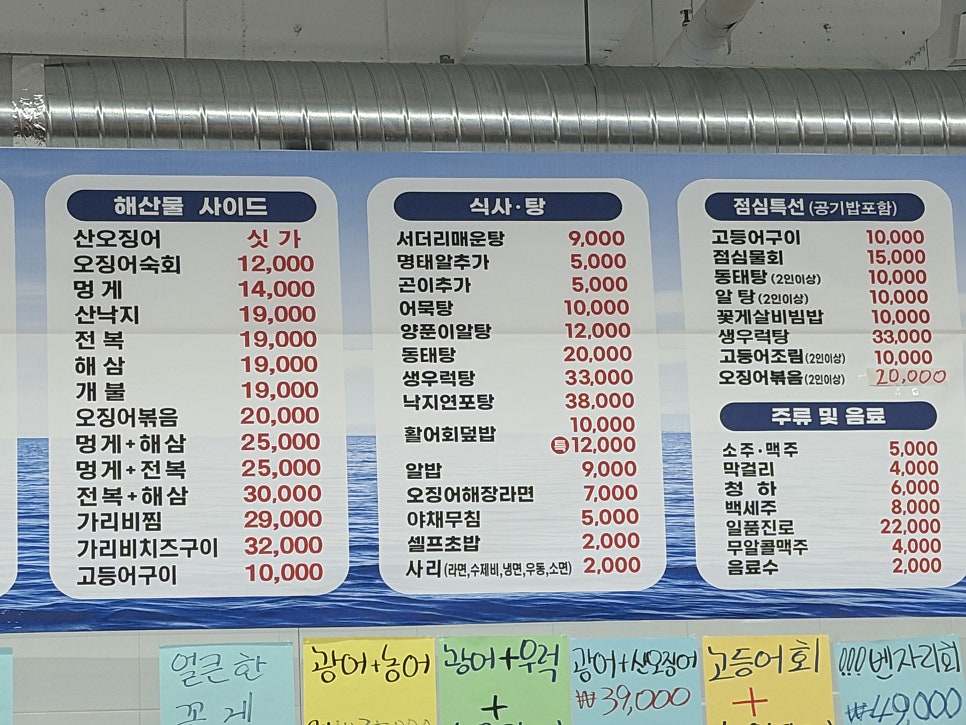 해산물 사이드
산오징어 싯가
오징어숙회 12,000
멍게 14,000
산낙지 19,000
전복 19,000
해삼 19,000
개불 19,000
오징어볶음 20,000
멍게+해삼 25,000
멍게+전복 25,000
전복+해삼 30,000
가리비찜 29,000
가리비치즈구이 32,000
고등어구이 10,000
식사·탕
서더리매운탕 9,000
명태알추가 5,000
곤이추가 5,000
어묵탕 10,000
양푼이알탕 12,000
동태탕 20,000
생우럭탕 33,000
낙지연포탕 38,000
활어회덮밥 10,000
특 12,000
알밥 9,000
오징어해장라면 7,000
야채무침 5,000
셀프초밥 2,000
사리(라면,수제비,냉면,우동,소면) 2,000
점심특선 (공기밥포함)
고등어구이 10,000
점심물회 15,000
동태탕 (2인이상) 10,000
알탕 (2인이상) 10,000
꽃게살비빔밥 10,000
생우럭탕 33,000
고등어조림(2인이상) 10,000
오징어볶음(2인이상) 20,000
주류 및 음료
소주·맥주 5,000
막걸리 4,000
청하 6,000
백세주 8,000
일품진로 22,000
무알콜맥주 4,000
음료수 2,000
얼큰한
꽃게
광어+농어
광어+우럭
+
광어+산오징어
₩39,000
고등어회
+
!!!벤자리회
₩49,000